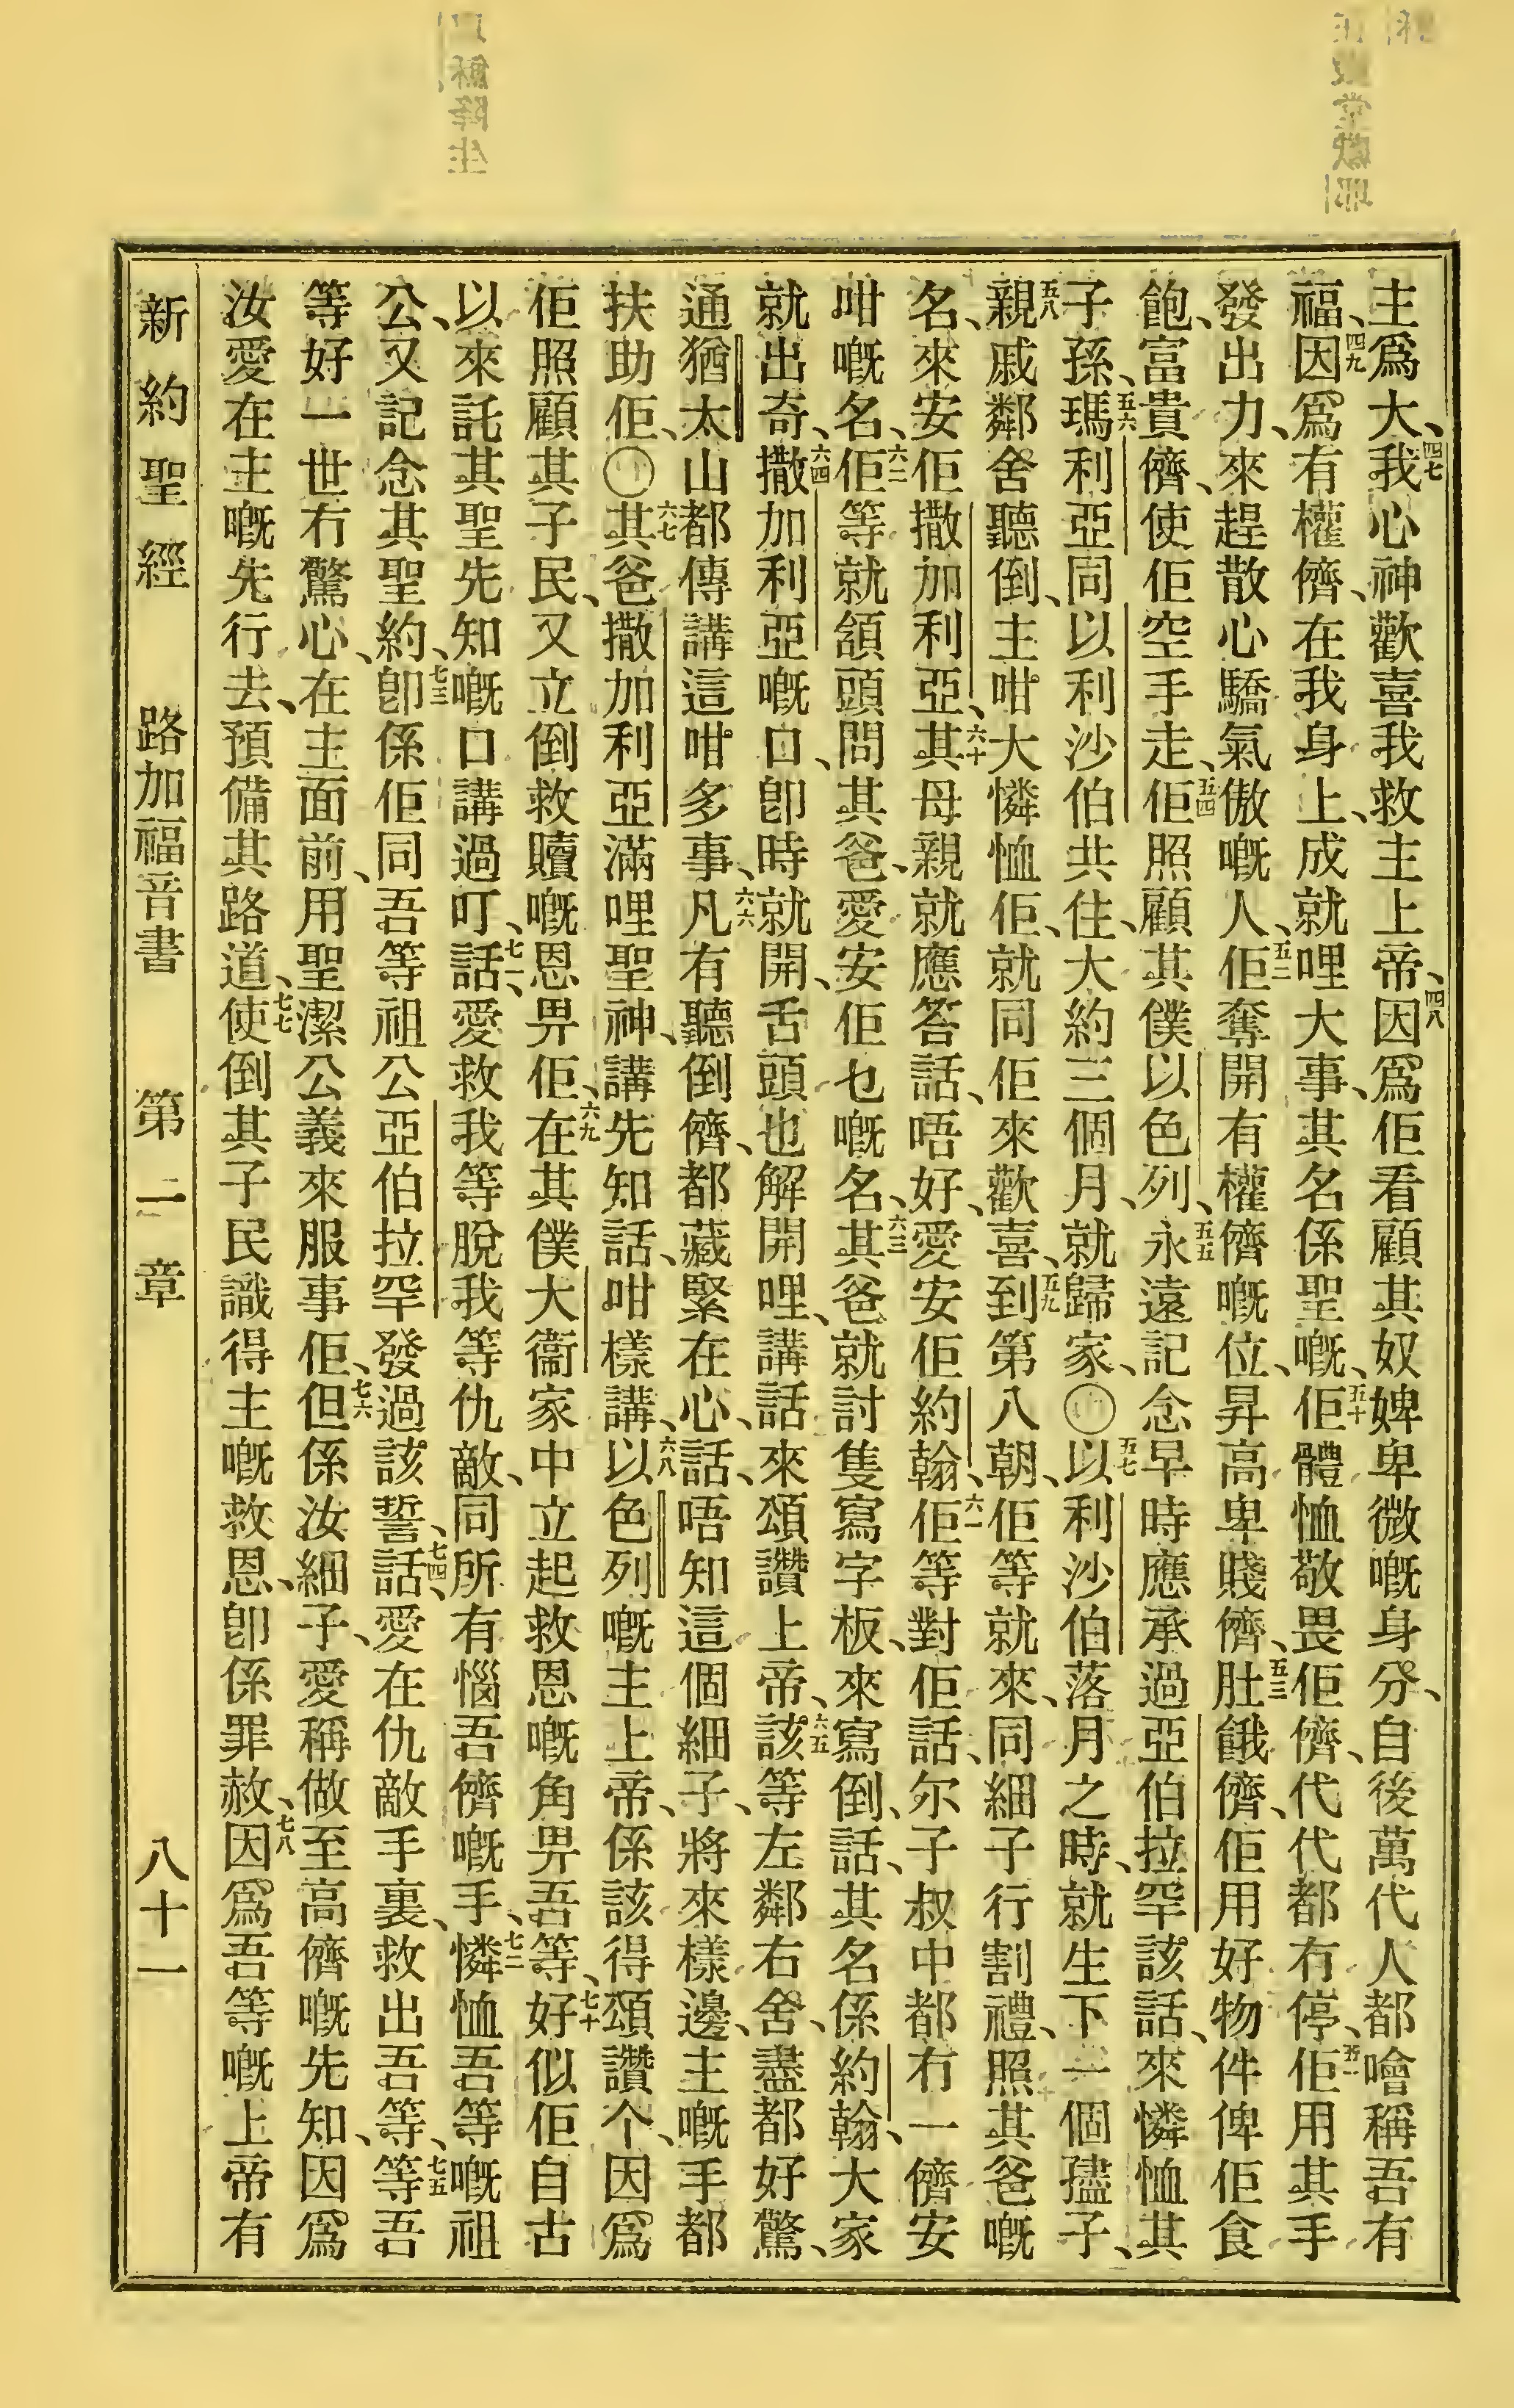 主爲大、四七我心神歡喜我救主上帝、四八因爲佢看顧其奴婢卑微嘅身分、自後萬代人都噲稱吾有
福、四九因爲有權儕、在我身上、成就哩大事、其名係聖嘅、五十佢體恤敬畏佢儕、代代都有停、五一佢用其手
發出力、來趕散心驕氣傲嘅人、五二佢奪開有權儕嘅位、昇高卑賤儕、五三肚餓儕、佢用好物件俾佢食
飽、富貴儕、使佢空手走、五四佢照顧其僕以色列、五五永遠記念早時應承過亞伯拉罕該話、來憐恤其
子孫、五六瑪利亞同以利沙伯共住、大約三個月、就歸家、〇五七以利沙伯落月之時、就生下一個孻子、
五八親戚鄰舍聽倒、主咁大憐恤佢、就同佢來歡喜、五九到第八朝、佢等就來、同細子行割禮、照其爸嘅
名、來安佢撒加利亞、六十其母親就應答話、唔好、愛安佢約翰、六一佢等對佢話、尔子叔中都冇一儕安
咁嘅名、六二佢等就頷頭問其爸、愛安佢乜嘅名、六三其爸就討隻寫字板、來寫倒、話、其名係約翰、大家
就出奇、六四撒加利亞嘅口、卽時就開、舌頭也解開哩、講話來頌讚上帝、六五該等左鄰右舍、盡都好驚、
通猶太山都傳講這咁多事、六六凡有聽倒儕、都藏緊在心、話、唔知這個細子、將來樣邊、主嘅手都
扶助佢、〇六七其爸撒加利亞滿哩聖神、講先知話、咁樣講、六八以色列嘅主上帝、係該得頌讚个、因爲
佢照顧其子民、又立倒救贖嘅恩畀佢、六九在其僕大衞家中立起救恩嘅角畀吾等、七十好似佢自古
以來託其聖先知嘅口講過叮、話、七一愛救我等脫我等仇敵、同所有惱吾儕嘅手、七二憐恤吾等嘅祖
公、又記念其聖約、七三卽係佢同吾等祖公亞伯拉罕發過該誓、話、七四愛在仇敵手裏、救出吾等、七五等吾
等好一世冇驚心、在主面前、用聖潔公義來服事佢、七六但係汝細子、愛稱做至高儕嘅先知、因爲
汝愛在主嘅先行去、預備其路道、七七使倒其子民識得主嘅救恩、卽係罪赦、七八因爲吾等嘅上帝有
新約聖經　路加福音書　第二章　八十一